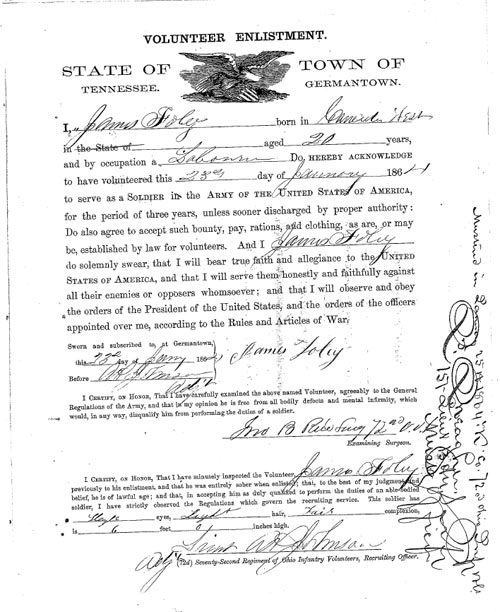 VOLUNTEER ENLISTMENT.
STATE OF TOWN OF
TENNESSEE. GERMANTOWN.
I, James Foley born in Canada West
in the State of aged 20 years,
and by occupation a Do, HEREBY ACKNOWLEDGE
to have volunteered this 23rd day of January 1864
to serve as a SOLDIER in the ARMY OF THE UNITED STATES OF AMERICA,
for the period of three years, unless sooner discharged by proper authority:
Do also agree to accept such bounty, pay, rations, and clothing, as are, or may
be, established by law for volunteers. And I James Foley
do solemnly swear, that I will bear true faith and allegiance to the UNITED
STATES OF AMERICA, and that I will serve them honestly and faithfully against
all their enemies or opposers whomsoever; and that I will observe and obey
the orders of the President of the United States, and the orders of the officers
appointed over me, according to the Rules and Articles of War.
Sworn and subscribed to, at Germantown,
this 23d day of 1864 James Foley
Before
Adjt
I CERTIFY, ON HONOR, That I have carefully examined the above named Volunteer, agreeably to the General
Regulations of the Army, and that in my opinion he is free from all bodily defects and mental infirmity, which
would, in any way, disqualify him from performing the duties of a soldier.
Jno B Rice Surg 72nd O.V.
Examining Surgeon.
I CERTIFY, ON HONOR, That I have minutely inspected the Volunteer, James Foley
previously to his enlistment, and that he was entirely sober when enlisted; that, to the best of my judgment and
belief, he is of lawful age; and that, in accepting him as duly qualified to perform the duties of an able-bodied
soldier, I have strictly observed the Regulations which govern the recruiting service. This soldier has
eyes, Light hair, Fair complexion,
is 6 feet inches high.
Johnson
Adjt (72d) Seventy-Second Regiment of Ohio Infantry Volunteers, Recruiting Officer.
Mustered in